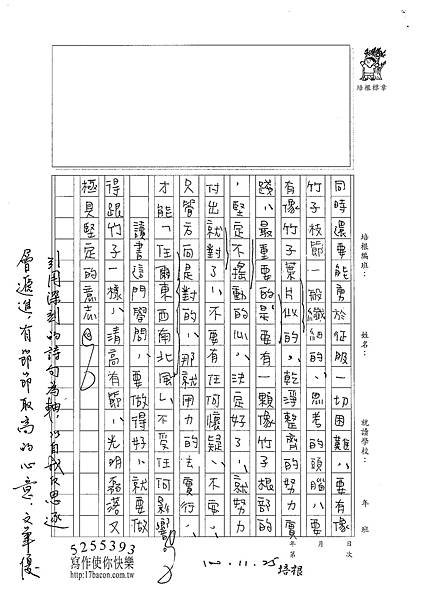 培根標章
培根編班：
姓名：
就讀學校：
年 班
年 月 日
第 次
同時還要能勇於征服一切困難，要有像
竹子枝節一般纖細的、思考的頭腦，要
有像竹子葉片似的，乾淨整齊的努力實
踐，最重要的是要有一顆像竹子根部的
，堅定不搖動的心，決定好了，就努力
付出就對了，不要有任何懷疑，不要，
只覺方向是對的，那就用力的去實行，
才能「任爾東西南北風」，不受任何影響。
讀書這門學問，要做得好，就要做
得跟竹子一樣，清高有節，光明磊落又
極具堅定的意志。
引用深刻的詩句為軸，以自我反思逐
層遞進，有節節取高的心意，文筆優
5255393
寫作使你快樂
http://17bacon.com.tw
100.11.25
培根